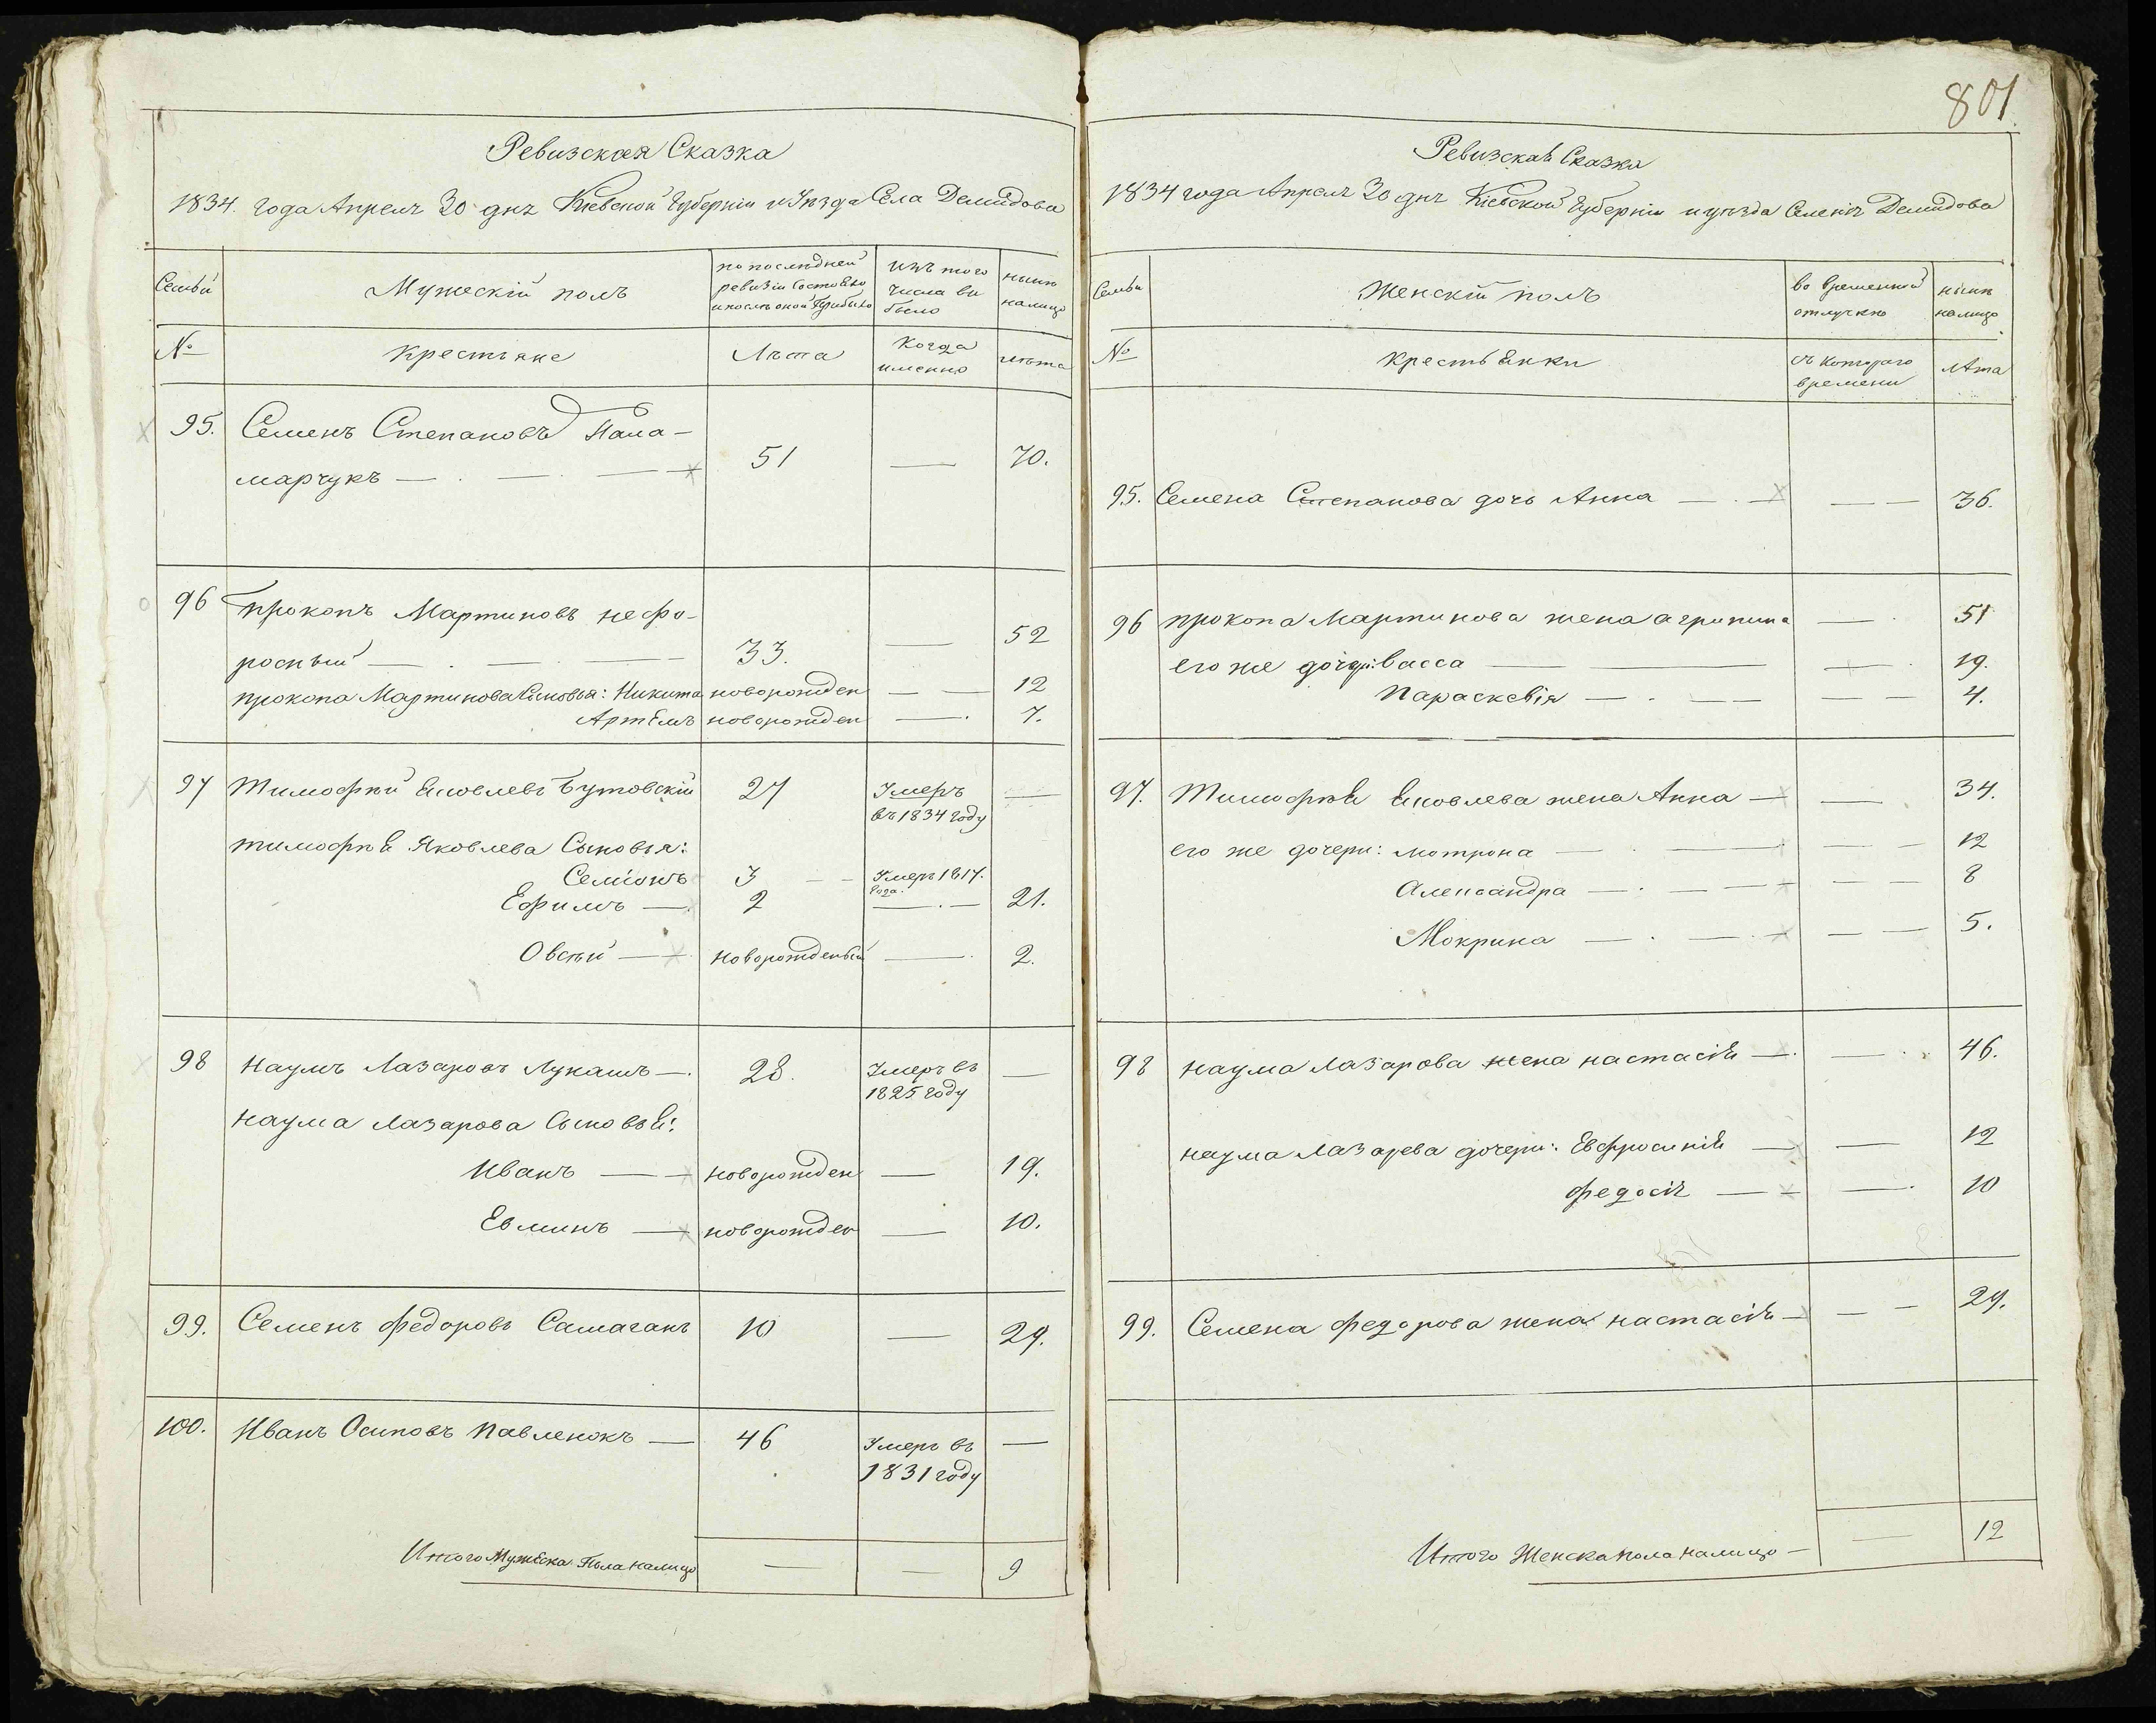 801
Ревизская Сказка
1834. года Апреля 30 дня Киевской Губернии и Уезда Села Демидова
Семьи
Мужескій полъ
по последней ревизіи состояло и после оной прибыло
изъ того числа выбыло
ныне налицо
№
Крестьяне
Лета
Когда именно
лета
95. Семенъ Степановъ Пана-
марчукъ — 51 — 70.
96 Прокопъ Мартиновъ нефо-
росный — 33. — 52
прокопа Мартинова Сыновья: Никита новорожден — 12
Артемъ новорожден — 7.
97 Тимофей Яковлевъ Бутовскій 27 Умеръ —
въ 1834 году
тимофея Яковлева Сыновья:
Семіонъ 3 — Умеръ 1817.
года.
Ефимъ — 2 — 21.
Овсей — новорожденый — 2.
98 Наумъ Лазаровъ Лукашъ — 28. Умеръ въ —
1825 году
Наума Лазарова Сыновья:
Иванъ — новорожден — 19.
Евминъ — новорожден — 10.
99. Семенъ Федоровъ Самаганъ 10 — 29.
100. Иванъ Осиповъ Павленокъ — 46 Умеръ въ —
1831 году
Итого Мужеска Пола налицо — — 9
Ревизская Сказка
1834 года Апреля 30 дня Кіевской Губерніи и уезда Селенія Демидова
Семьи
Женскій полъ
во временной отлучке
ныне налицо
№
крестьянки
съ котораго времени
лета
95. Семена Степанова дочь Анна — — 36.
96 прокопа Мартинова жена агрипина — 51
его же дочери: Васса — — 19.
Параскевія — — 4.
97. Тимофея Яковлева жена Анна — — 34.
его же дочери: мотрона — — 12
Александра — — 8
Мокрина — — 5.
98 наума Лазарова жена настасія — — 46.
наума Лазарева дочери: Евфросинія — — 12
федосія — — 10
99. Семена федорова жена настасія — — 29.
Итого Женска пола налицо — — 12